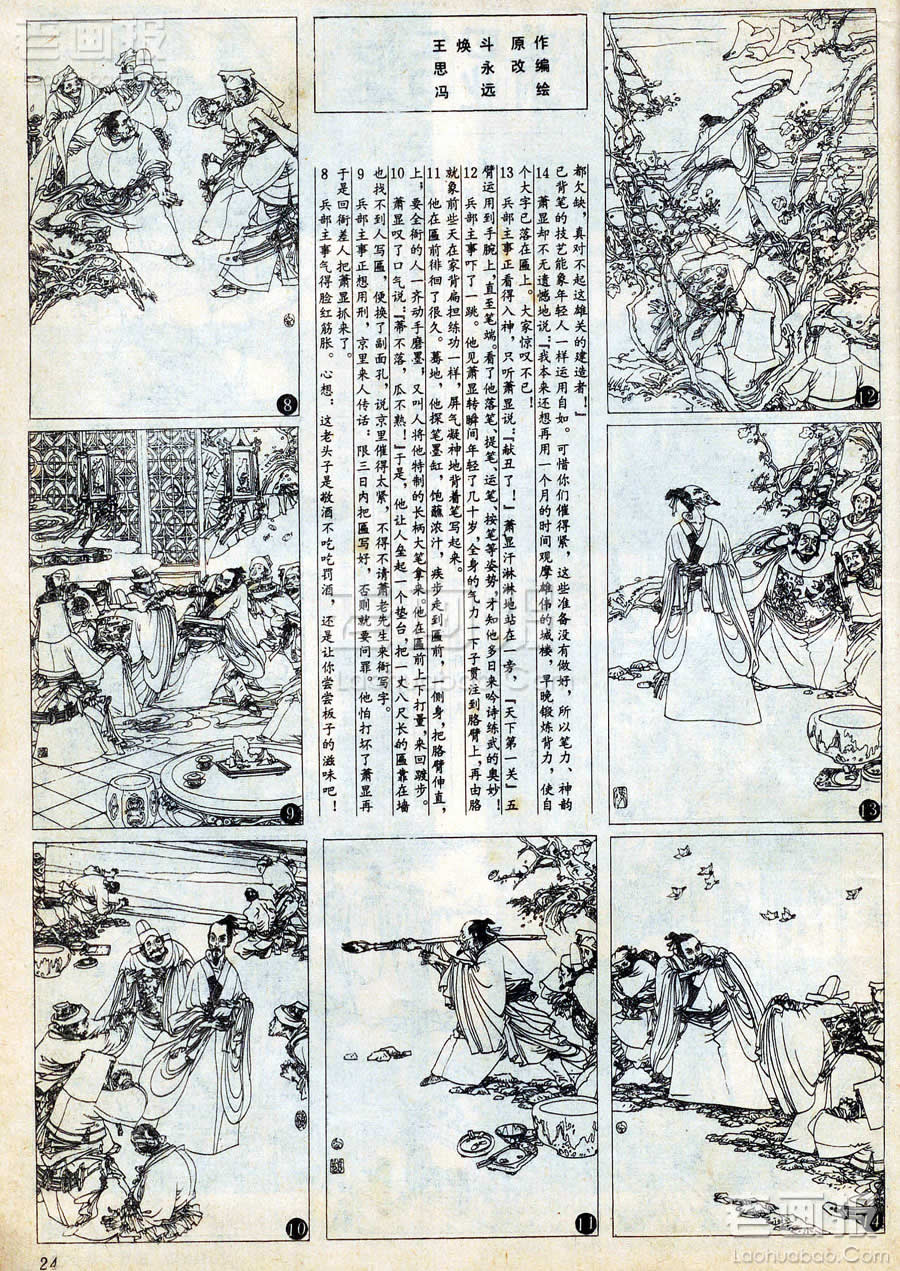 王焕斗 原作
思 永 改编
冯 远 绘
8 兵部主事气得脸红筋胀。心想：这老头子是敬酒不吃吃罚酒，还是让你尝尝板子的滋味吧！
于是回衙差人把萧显抓来了。
9 兵部主事正想用刑，京里来人传话：限三日内把匾写好，否则就要问罪。他怕打坏了萧显再
也找不到人写匾，便换了副面孔，说京里催得太紧，不得不请萧老先生来衙写字。
10 萧显叹了口气说：“蒂不落，瓜不熟！”于是，他让人垒起一个垫台，把一丈八尺长的匾靠在墙
上，要全衙的人一齐动手磨墨，又叫人将他特制的长柄大笔拿来。他在匾前上下打量，来回踱步。
11 他在匾前徘徊了很久。蓦地，他探笔墨缸，饱蘸浓汁，疾步走到匾前，侧身，把胳臂伸直，
就象前些天在家背扁担练功一样，屏气凝神地背着笔写起来。
12 兵部主事吓了一跳。他见萧显转瞬间年轻了几十岁，全身的气力一下子贯注到胳臂上，再由胳
臂运用到手腕上，直至笔端。看了他落笔、提笔、运笔、按笔等姿势，才知他多日来吟诗练武的奥妙！
13 兵部主事正看得入神，只听萧显说：“献丑了！”萧显汗淋淋地站在一旁，“天下第一关”五
个大字已落在匾上。大家惊叹不已！
14 萧显却不无遗憾地说：“我本来还想再用一个月的时间观摩雄伟的城楼，早晚锻炼背力，使自
己背笔的技艺能象年轻人一样运用自如。可惜你们催得紧，这些准备没有做好，所以笔力、神韵
都欠缺，真对不起这雄关的建造者！”
8
9
10
11
12
13
4
24
老画报
Laohuabao.Com